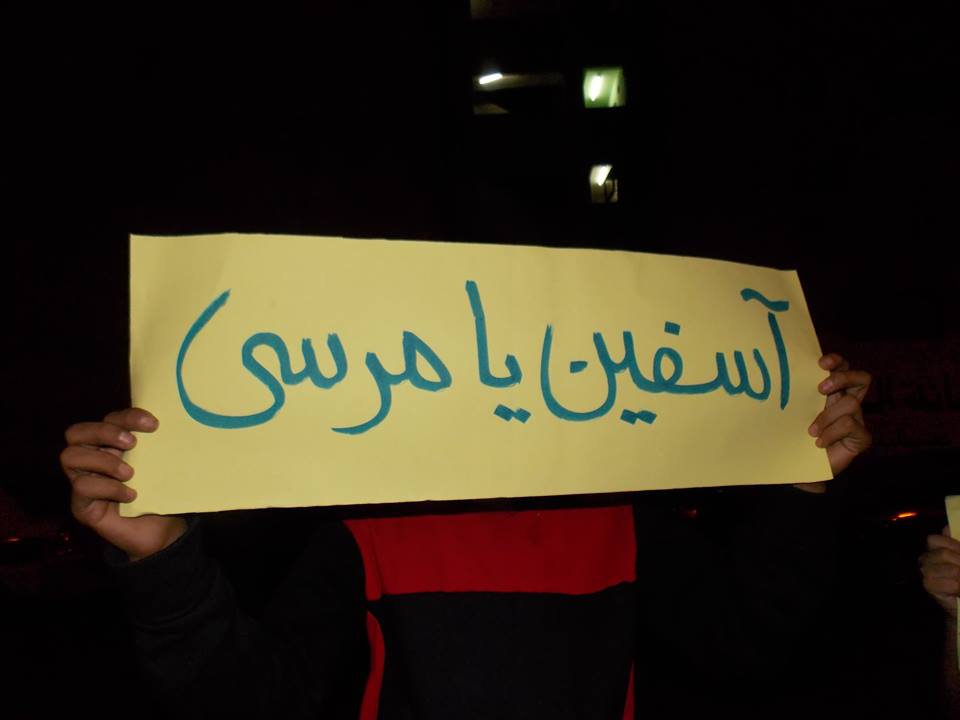 آسفين يا مرسى